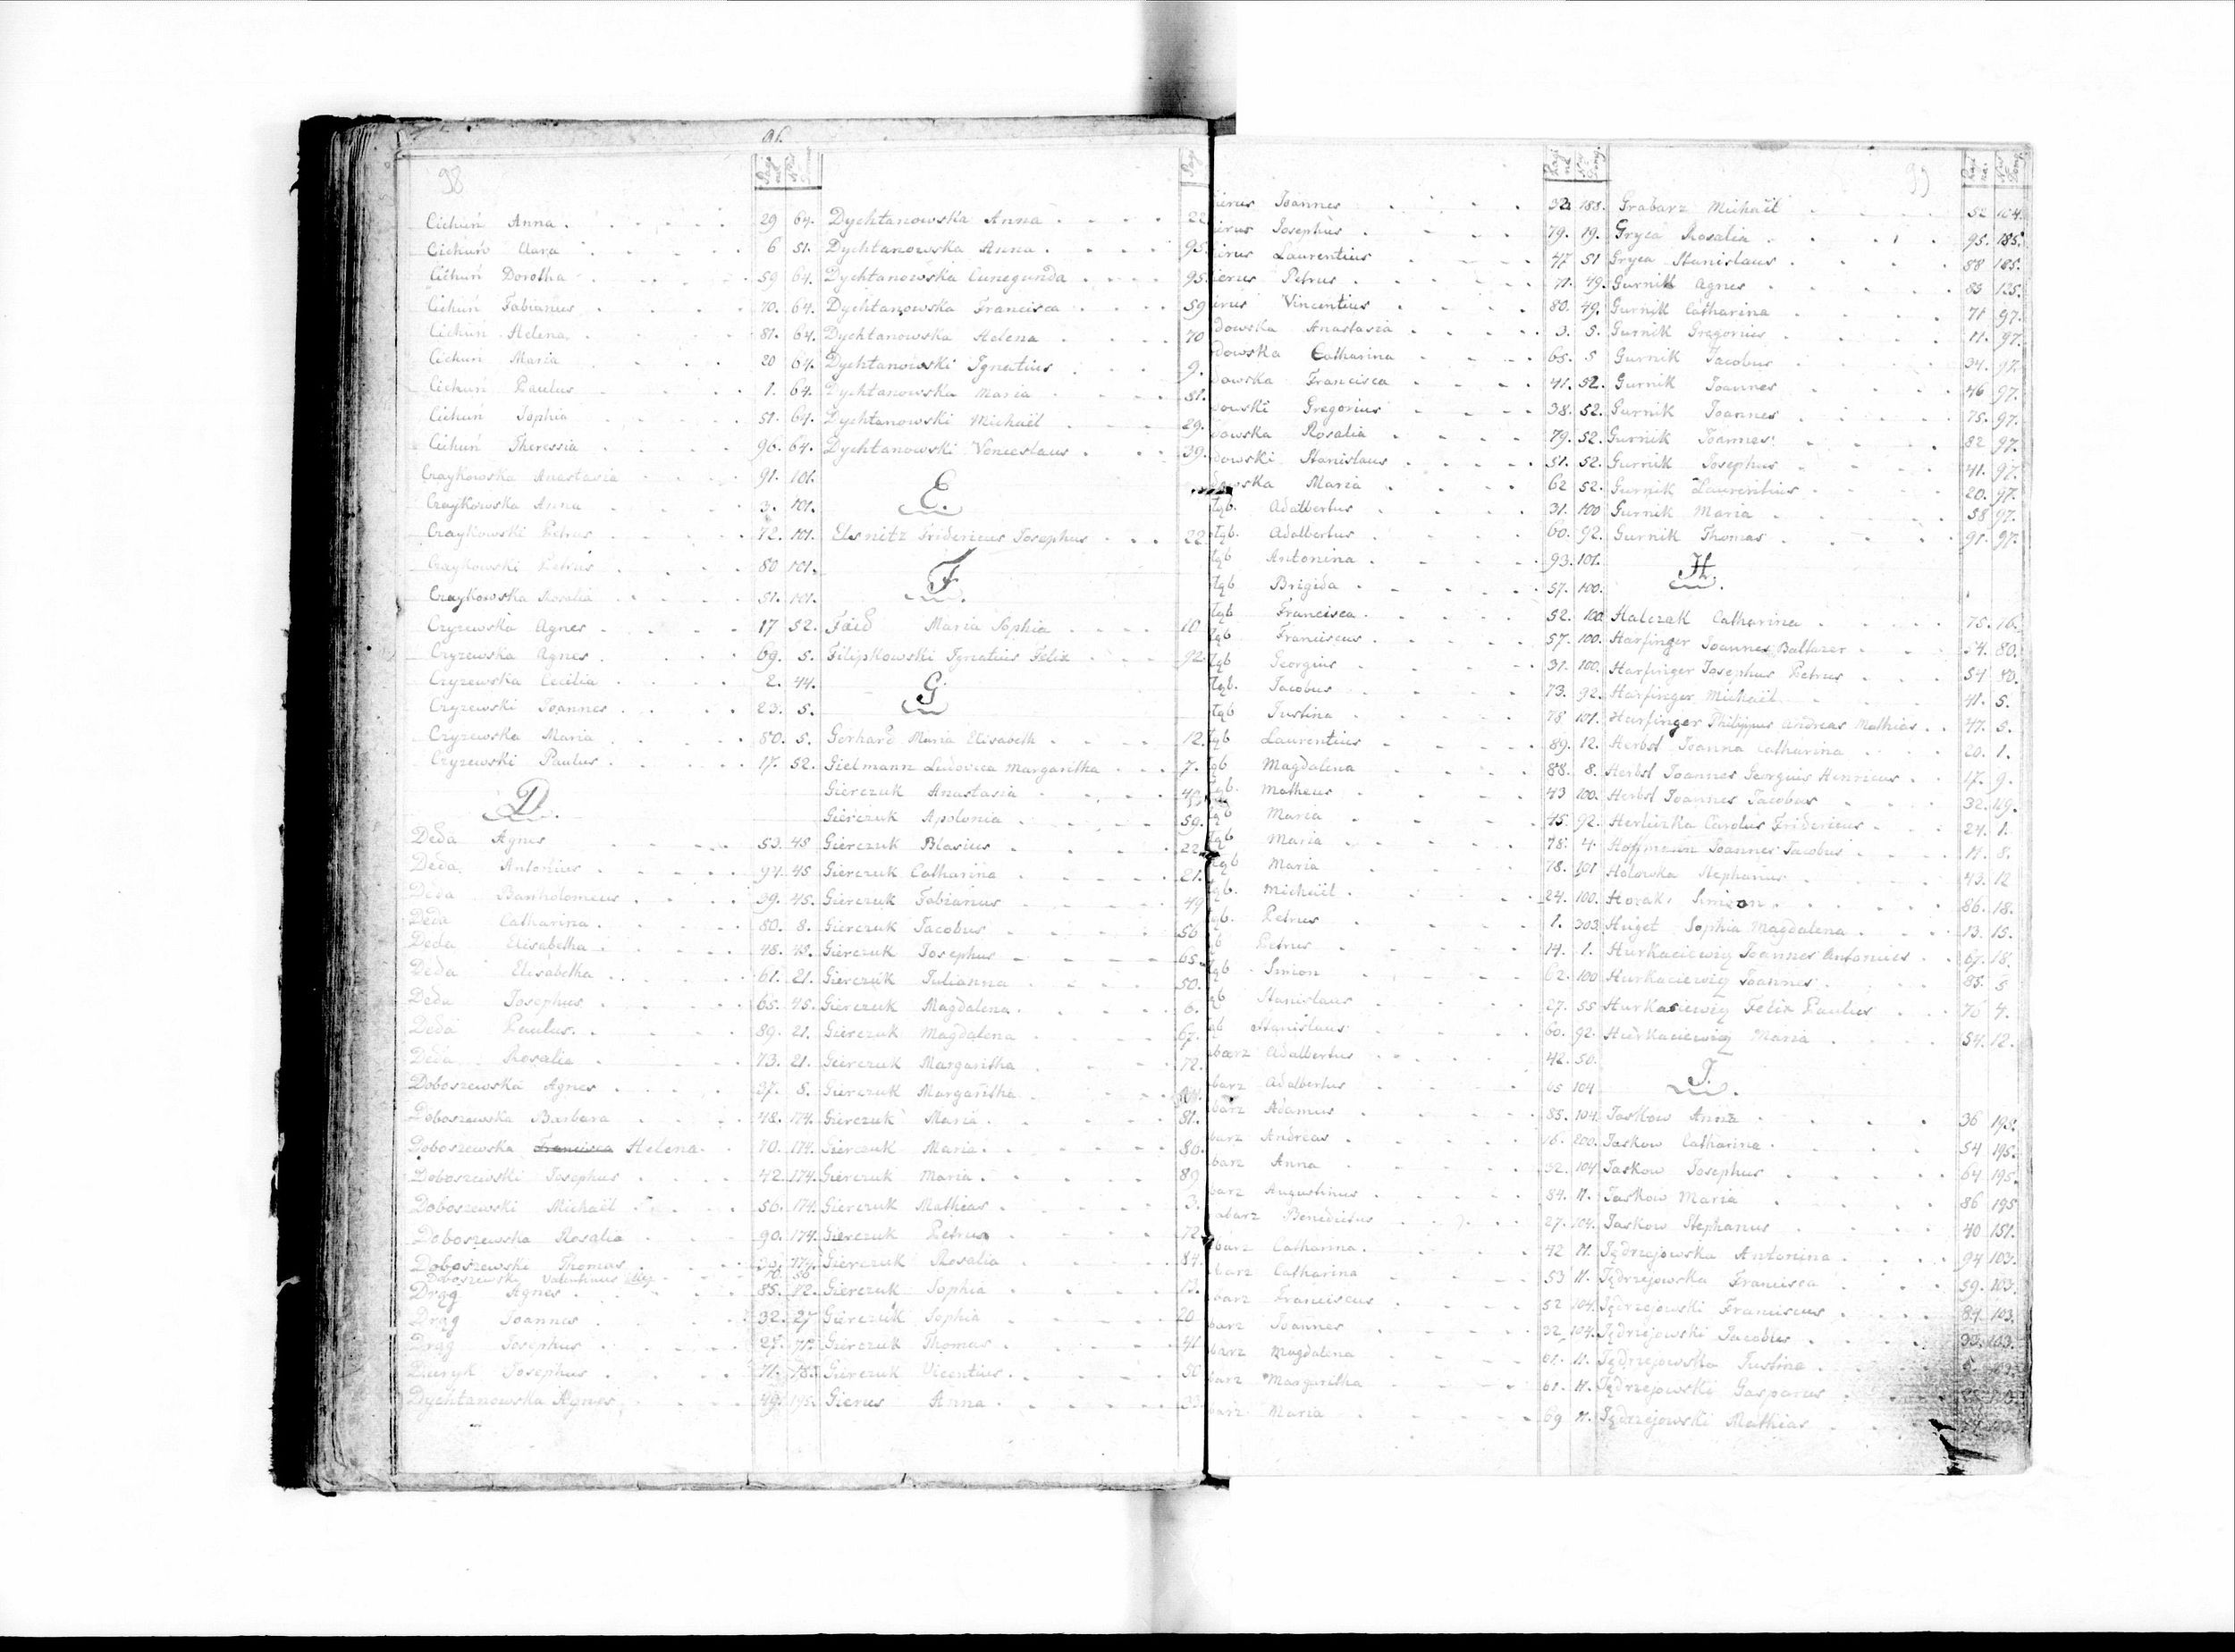 96.
98
Cichuń Anna 29 64.
Cichuń Clara 6 51.
Cichuń Dorotha 59 64.
Cichuń Fabianus 70. 64.
Cichuń Helena 81. 64.
Cichuń Maria 20 64.
Cichuń Paulus 1. 64.
Cichuń Sophia 51. 64.
Cichuń Theressia 96. 64.
Czaykowska Anastasia 91. 101.
Czaykowska Anna 3. 101.
Czaykowski Petrus 72. 101.
Czaykowski Petrus 80 101.
Czaykowska Rosalia 51. 101.
Czyzewska Agnes 17 52.
Czyzewska Agnes 69. 5.
Czyzewska Cecilia 2. 44.
Czyzewski Joannes 23. 5.
Czyzewska Maria 80. 5.
Czyzewski Paulus 17. 52.
D.
Deda Agnes 53. 45
Deda Antonius 94. 45
Deda Bartholomeus 39. 45.
Deda Catharina 80. 8.
Deda Elisabetha 48. 45.
Deda Elisabetha 61. 21.
Deda Josephus 65. 45.
Deda Paulus 89. 21.
Deda Rosalia 73. 21.
Doboszewska Agnes 37. 8.
Doboszewska Barbara 48. 174.
Doboszewska Francisca Helena 70. 174.
Doboszewski Josephus 42. 174.
Doboszewski Michaël 56. 174.
Doboszewska Rosalia 90. 174.
Doboszewski Thomas 174.
Doboszewsky Valentinus 70. 56
Drąg Agnes 85. 72.
Drąg Joannes 32. 27
Drąg Josephus 27. 75.
Josephus 71. 78.
Dychtanowska Agnes 49. 145.
Dychtanowska Anna 22.
Dychtanowska Anna 95.
Dychtanowska Cunegunda 95.
Dychtanowska Francisca 59
Dychtanowska Helena 70
Dychtanowski Ignatius 9.
Dychtanowska Maria 81.
Dychtanowski Michaël 29.
Dychtanowski Venceslaus 39.
E.
Elsnitz Fridericus Josephus 22
F.
Faid Maria Sophia 10
Filipkowski Ignatius Felix 92
G
Gerhard Maria Elisabeth 12.
Gielmann Ludovica Margaritha 7.
Gierczuk Anastasia
Gierczuk Apolonia 59.
Gierczuk Blasius 22
Gierczuk Catharina 21.
Gierczuk Fabianus 49
Gierczuk Jacobus 56
Gierczuk Josephus 65.
Gierczuk Julianna 50.
Gierczuk Magdalena 6.
Gierczuk Magdalena 67.
Gierczuk Margaritha 72.
Gierczuk Margaritha
Gierczuk Maria 81.
Gierczuk Maria 86.
Gierczuk Maria 89
Gierczuk Mathias 3.
Gierczuk Petrus 72
Gierczuk Rosalia 84.
Gierczuk Sophia 13.
Gierczuk Sophia 20
Gierczuk Thomas 41
Gierczuk Vicentius 50
Gierus Anna 33
99
ierus Joannes 32. 188.
ierus Josephus 79. 19.
ierus Laurentius 47 51
ierus Petrus 71. 49.
ierus Vincentius 80. 49.
dowska Anastasia 3. 5.
dowska Catharina 65. 5
dowska Francisca 41. 52.
dowski Gregorius 38. 52.
dowska Rosalia 79. 52.
dowski Stanislaus 51. 52.
owska Maria 62 52.
łąb. Adalbertus 31. 100
łąb. Adalbertus 60. 92.
łąb Antonina 93. 101.
łąb Brigida 57. 100.
łąb Francisca 52. 100
łąb Franciscus 57. 100.
łąb Georgius 31. 100.
łąb. Jacobus 73. 92.
łąb Justina 75 101.
łąb Laurentius 89. 12.
łąb Magdalena 88. 8.
łąb. Matheus 43 100.
łąb Maria 45. 92.
łąb Maria 78. 4.
łąb Maria 78. 101
łąb. Michaël 24. 100.
łąb. Petrus 1. 303
ąb Petrus 14. 1.
łąb Simon 62. 100
łąb Stanislaus 27. 55
ąb Stanislaus 60. 92.
barz Adalbertus 42. 50.
barz Adalbertus 65 104
barz Adamus 85. 104.
barz Andreas 200.
barz Anna 32. 104
barz Augustinus 84. 11.
abarz Benedictus 27. 104.
barz Catharina 42 11.
barz Catharina 53 11.
barz Franciscus 52 104.
barz Joannes 32. 104.
barz Magdalena 61. 11.
barz Margaritha 61. 11.
barz Maria 69 11.
Grabarz Michaël 52 104.
Gryca Rosalia 95. 185.
Gryca Stanislaus 88 185.
Gurnik Agnes 83 125.
Gurnik Catharina 71 97.
Gurnik Gregorius 11. 97.
Gurnik Jacobus 34. 97.
Gurnik Joannes 46 97.
Gurnik Joannes 75. 97.
Gurnik Joannes 82 97.
Gurnik Josephus 41. 97.
Gurnik Laurentius 20. 97.
Gurnik Maria 58 97.
Gurnik Thomas 91. 97.
H.
Halczak Catharina 75. 16.
Harfinger Joannes Baltazer 54. 80.
Harfinger Josephus Petrus 54 80.
Harfinger Michaël 41. 5.
Harfinger Philippus Andreas Mathias 47. 5.
Herbst Joanna Catharina 20. 1.
Herbst Joannes Georgius Henricus 17. 9.
Herbst Joannes Jacobus 32. 119.
Herliczka Carolus Fridericus 24. 1.
Hoffmann Joannes Jacobus 11. 8.
Holowka Stephanus 43. 12
Horak Simeon 86. 18.
Huget Sophia Magdalena 13. 15.
Hurkaciewicz Joannes Antonius 67. 18.
Hurkaciewicz Joannes 85. 5
Hurkaciewicz Felix Paulus 76 4.
Hurkaciewicz Maria 54. 12.
J.
Jaskow Anna 36 195.
Jaskow Catharina 54 195.
Jaskow Josephus 64 195.
Jaskow Maria 86 195
Jaskow Stephanus 40 151.
Jędrzejowska Antonina 94 103.
Jędrzejowska Francisca 59. 103.
Jędrzejowski Franciscus 84 103.
Jędrzejowski Jacobus 103.
Jędrzejowska Justina
Jędrzejowski Gasparus
Jędrzejowski Mathias